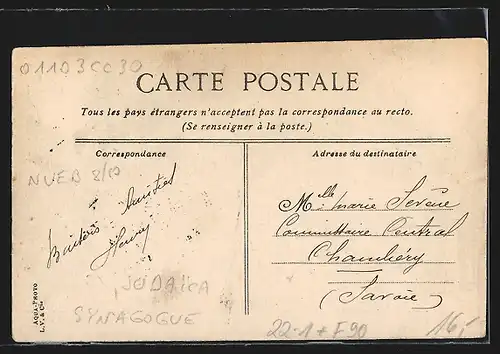 01103CC30
CARTE POSTALE
Tous les pays étrangers n'acceptent pas la correspondance au recto.
(Se renseigner à la poste.)
Correspondance
Adresse du destinataire
NUEB 8/10
Amitiés
Henry
Melle Marie
Commissaire Central
Chambéry
(Savoie)
AQUA-PHOTO
L. V. & Cie
JUDAICA
SYNAGOGUE
22-1 + F90
16,-